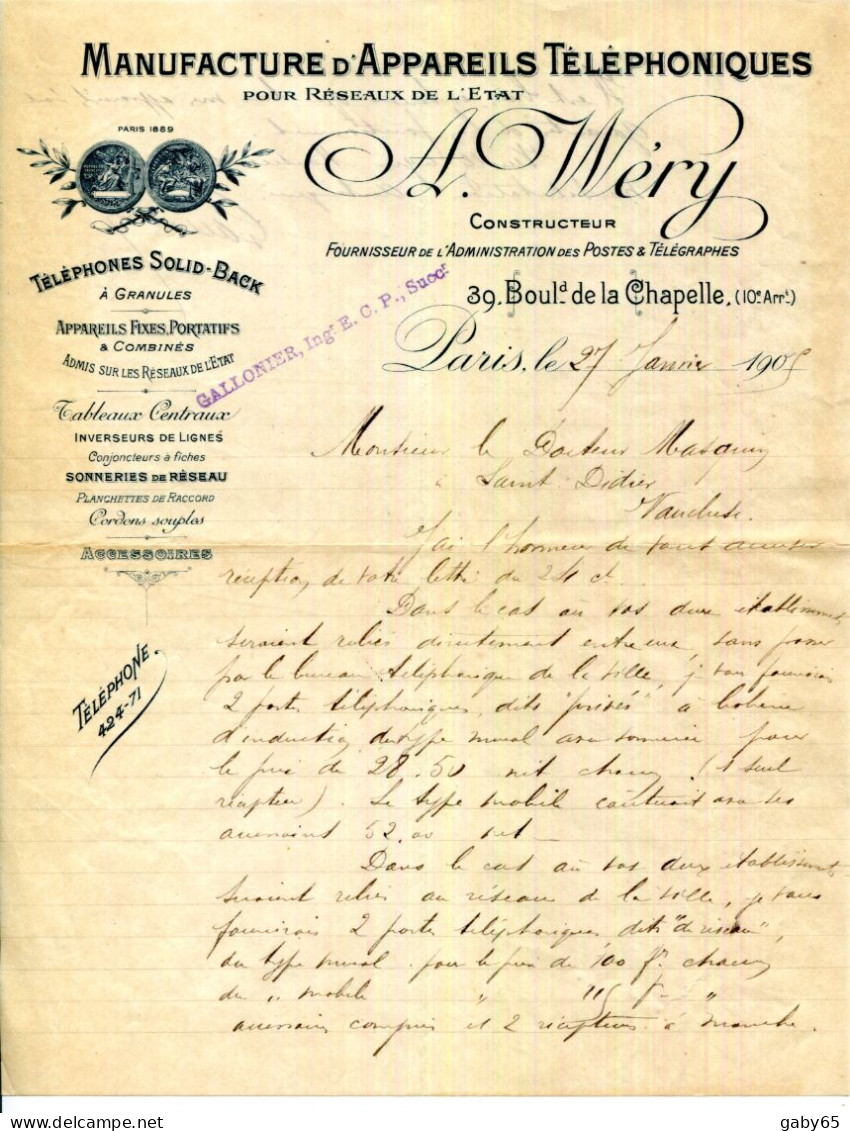 MANUFACTURE D'APPAREILS TÉLÉPHONIQUES
POUR RÉSEAUX DE L'ETAT
PARIS 1889
A. Wéry
CONSTRUCTEUR
FOURNISSEUR DE L'ADMINISTRATION DES POSTES & TÉLÉGRAPHES
39, Boul.d de la Chapelle, (10e Arr.t)
TÉLÉPHONES SOLID-BACK
À GRANULES
APPAREILS FIXES, PORTATIFS
& COMBINÉS
ADMIS SUR LES RÉSEAUX DE L'ETAT
Tableaux Centraux
INVERSEURS DE LIGNES
Conjoncteurs à fiches
SONNERIES DE RÉSEAU
PLANCHETTES DE RACCORD
Cordons souples
ACCESSOIRES
TÉLÉPHONE.
424-71
GALLONIER, Ingr E. C. P., Succr
Paris, le 27 Janvier 1905
Monsieur le Docteur Masquin
à Saint Didier
Vaucluse.
J'ai l'honneur de vous accuser
réception de votre lettre du 24 ct.
Dans le cas où vos deux établissements
seraient reliés directement entre eux, sans passer
par le bureau téléphonique de la ville, je vous fournirais
2 postes téléphoniques, dits "privés" à bobine
d'induction, du type mural avec sonnerie pour
le prix de 28.50 net chacun (1 seul
récepteur). Le type mobile coûterait avec ses
accessoires 52.00 net
Dans le cas où vos deux établissements
seraient reliés au réseau de la ville, je vous
fournirais 2 postes téléphoniques dits "de réseau",
du type mural pour le prix de 100 f. chacun
du " mobile " 115 f - "
accessoires compris et 2 récepteurs à manche.
gaby65